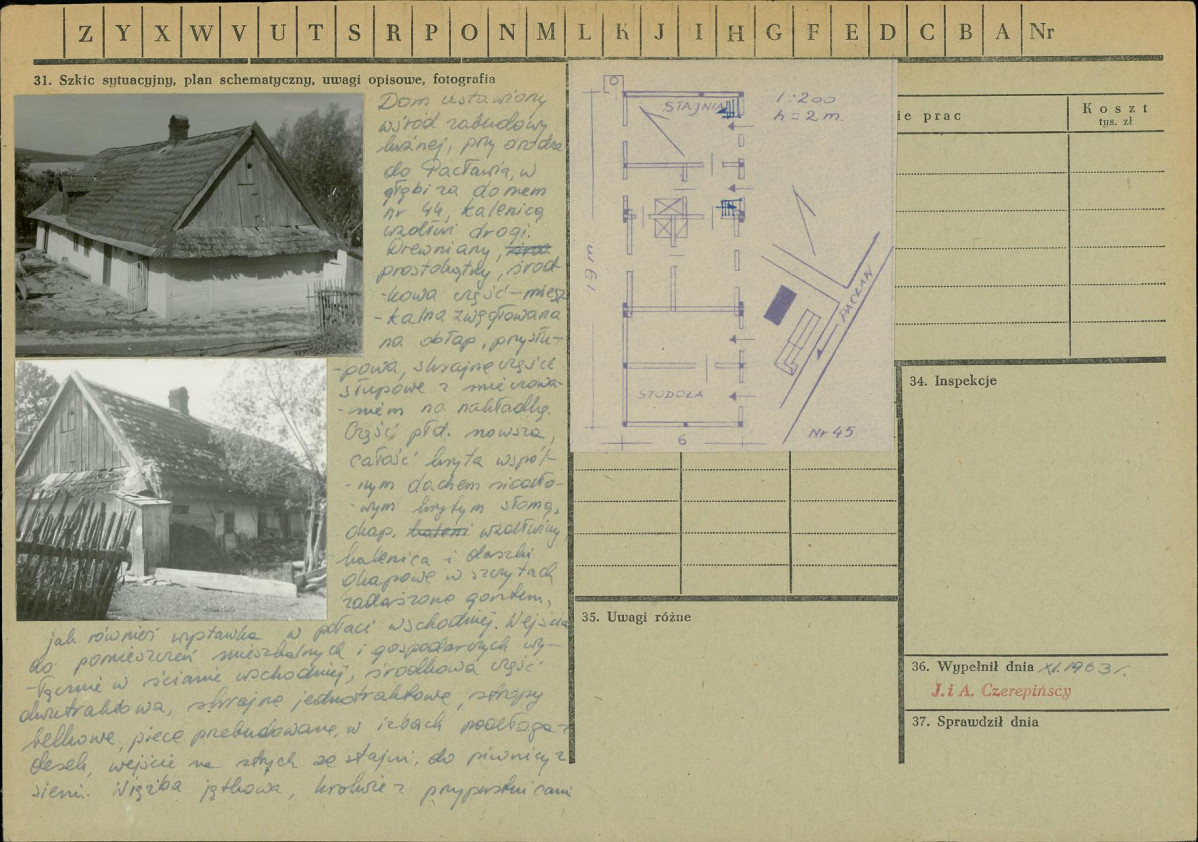 Z Y X W V U T S R P O N M L K J I H G F E D C B A Nr
31. Szkic sytuacyjny, plan schematyczny, uwagi opisowe, fotografia
Dom ustawiony
wśród zabudowy
luźnej, przy drodze
do Pacławia, w
głębi za domem
nr 44, kalenicą
wzdłuż drogi.
Drewniany,
prostokątny, środ-
-kowa część - miesz-
-kalna zwęgłowana
na obłap, przysłu-
-powa, skrajne części
słupowe z mieczowa-
-niem na nakładkę.
Część płd. nowsza,
całość kryta wspól-
-nym dachem siodło-
-wym krytym słomą,
okap. wzdłużny,
kalenica i daszki
okapowe w szczytach
zadaszone gontem,
jak również wystawka w połaci wschodniej. Wejścia
do pomieszczeń mieszkalnych i gospodarczych wy-
-łącznie w ścianie wschodniej, środkowa część
dwutraktowa, skrajne jednotraktowe, stropy
belkowe, piece przebudowane, w izbach podłoga z
desek, wejście na strych ze stajni, do piwnicy z
sieni. Więźba jętkowa, krokwie z przypustnicami
STAJNIA
1:200
h = 2 m.
19 m
PACŁAW
STODOŁA
6
Nr 45
ie prac
Koszt
tys. zł
34. Inspekcje
35. Uwagi różne
36. Wypełnił dnia XI.1963 r.
J. i A. Czerepińscy
37. Sprawdził dnia